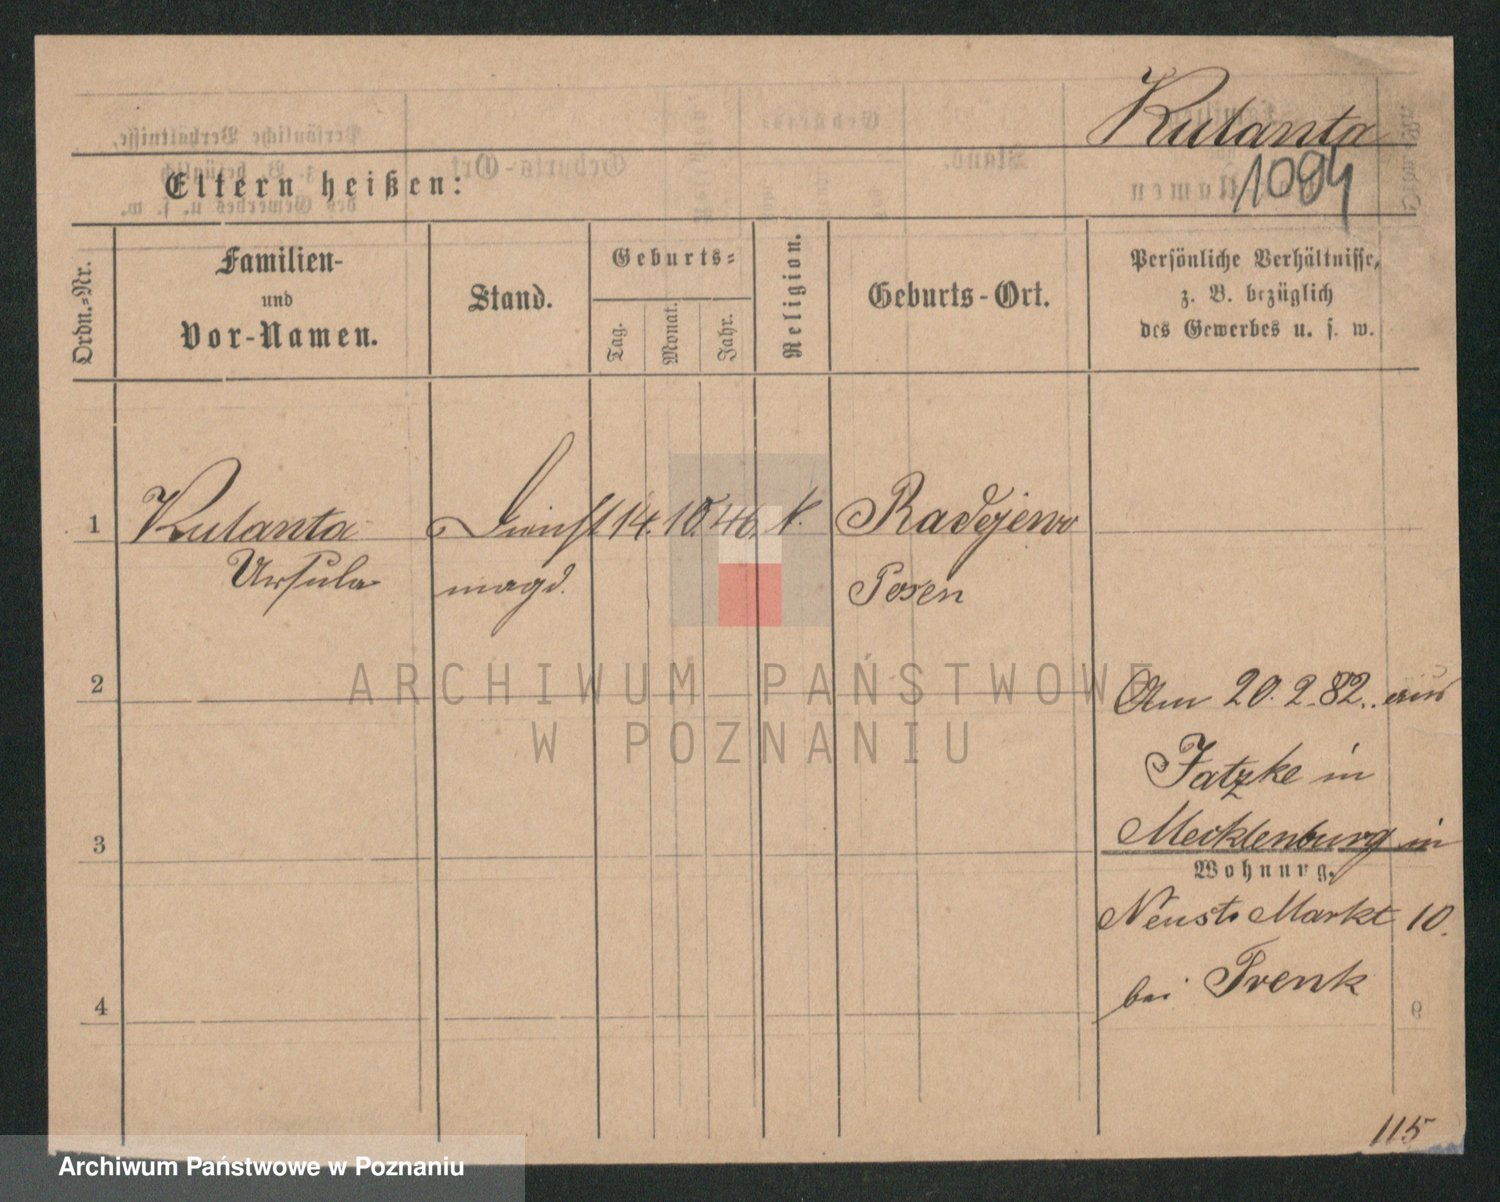 Kulanta
1094
Eltern heißen:
Ordn.=Nr.
Familien-
und
Vor-Namen.
Stand.
Geburts=
Tag.
Monat.
Jahr.
Religion.
Geburts-Ort.
Persönliche Verhältnisse,
z. B. bezüglich
des Gewerbes u. s. w.
1
Kulanta
Ursula
Dienst
magd.
14. 10. 46. k.
Radojewo
Posen
2
Am 20. 2. 82. aus
Jatzke in
Mecklenburg in
3
Wohnung.
Neust. Markt 10.
bei Frenk
4
115
ARCHIWUM PAŃSTWOWE
W POZNANIU
Archiwum Państwowe w Poznaniu